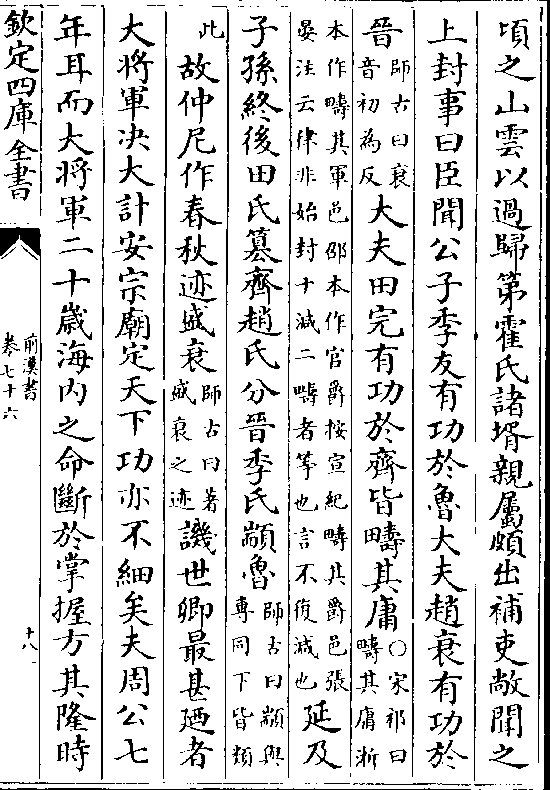 頃之山雲以過歸第霍氏諸壻親屬頗出補吏敞聞之
上封事曰臣聞公子季友有功於魯大夫趙衰有功於
晉師古曰衰音初為反大夫田完有功於齊皆疇其庸○宋祁曰疇其庸浙
本作疇其軍邑邵本作官爵按宣紀疇其爵邑張晏注云律非始封十減二疇者等也言不復減也延及
子孫終後田氏篡齊趙氏分晉季氏顓魯師古曰顓與專同下皆類
此故仲尼作春秋迹盛衰師古曰著盛衰之迹譏世卿最甚廼者
大將軍决大計安宗廟定天下功亦不細矣夫周公七
年耳而大將軍二十歲海内之命斷於掌握方其隆時
欽定四庫全書
前漢書
卷七十六
十八